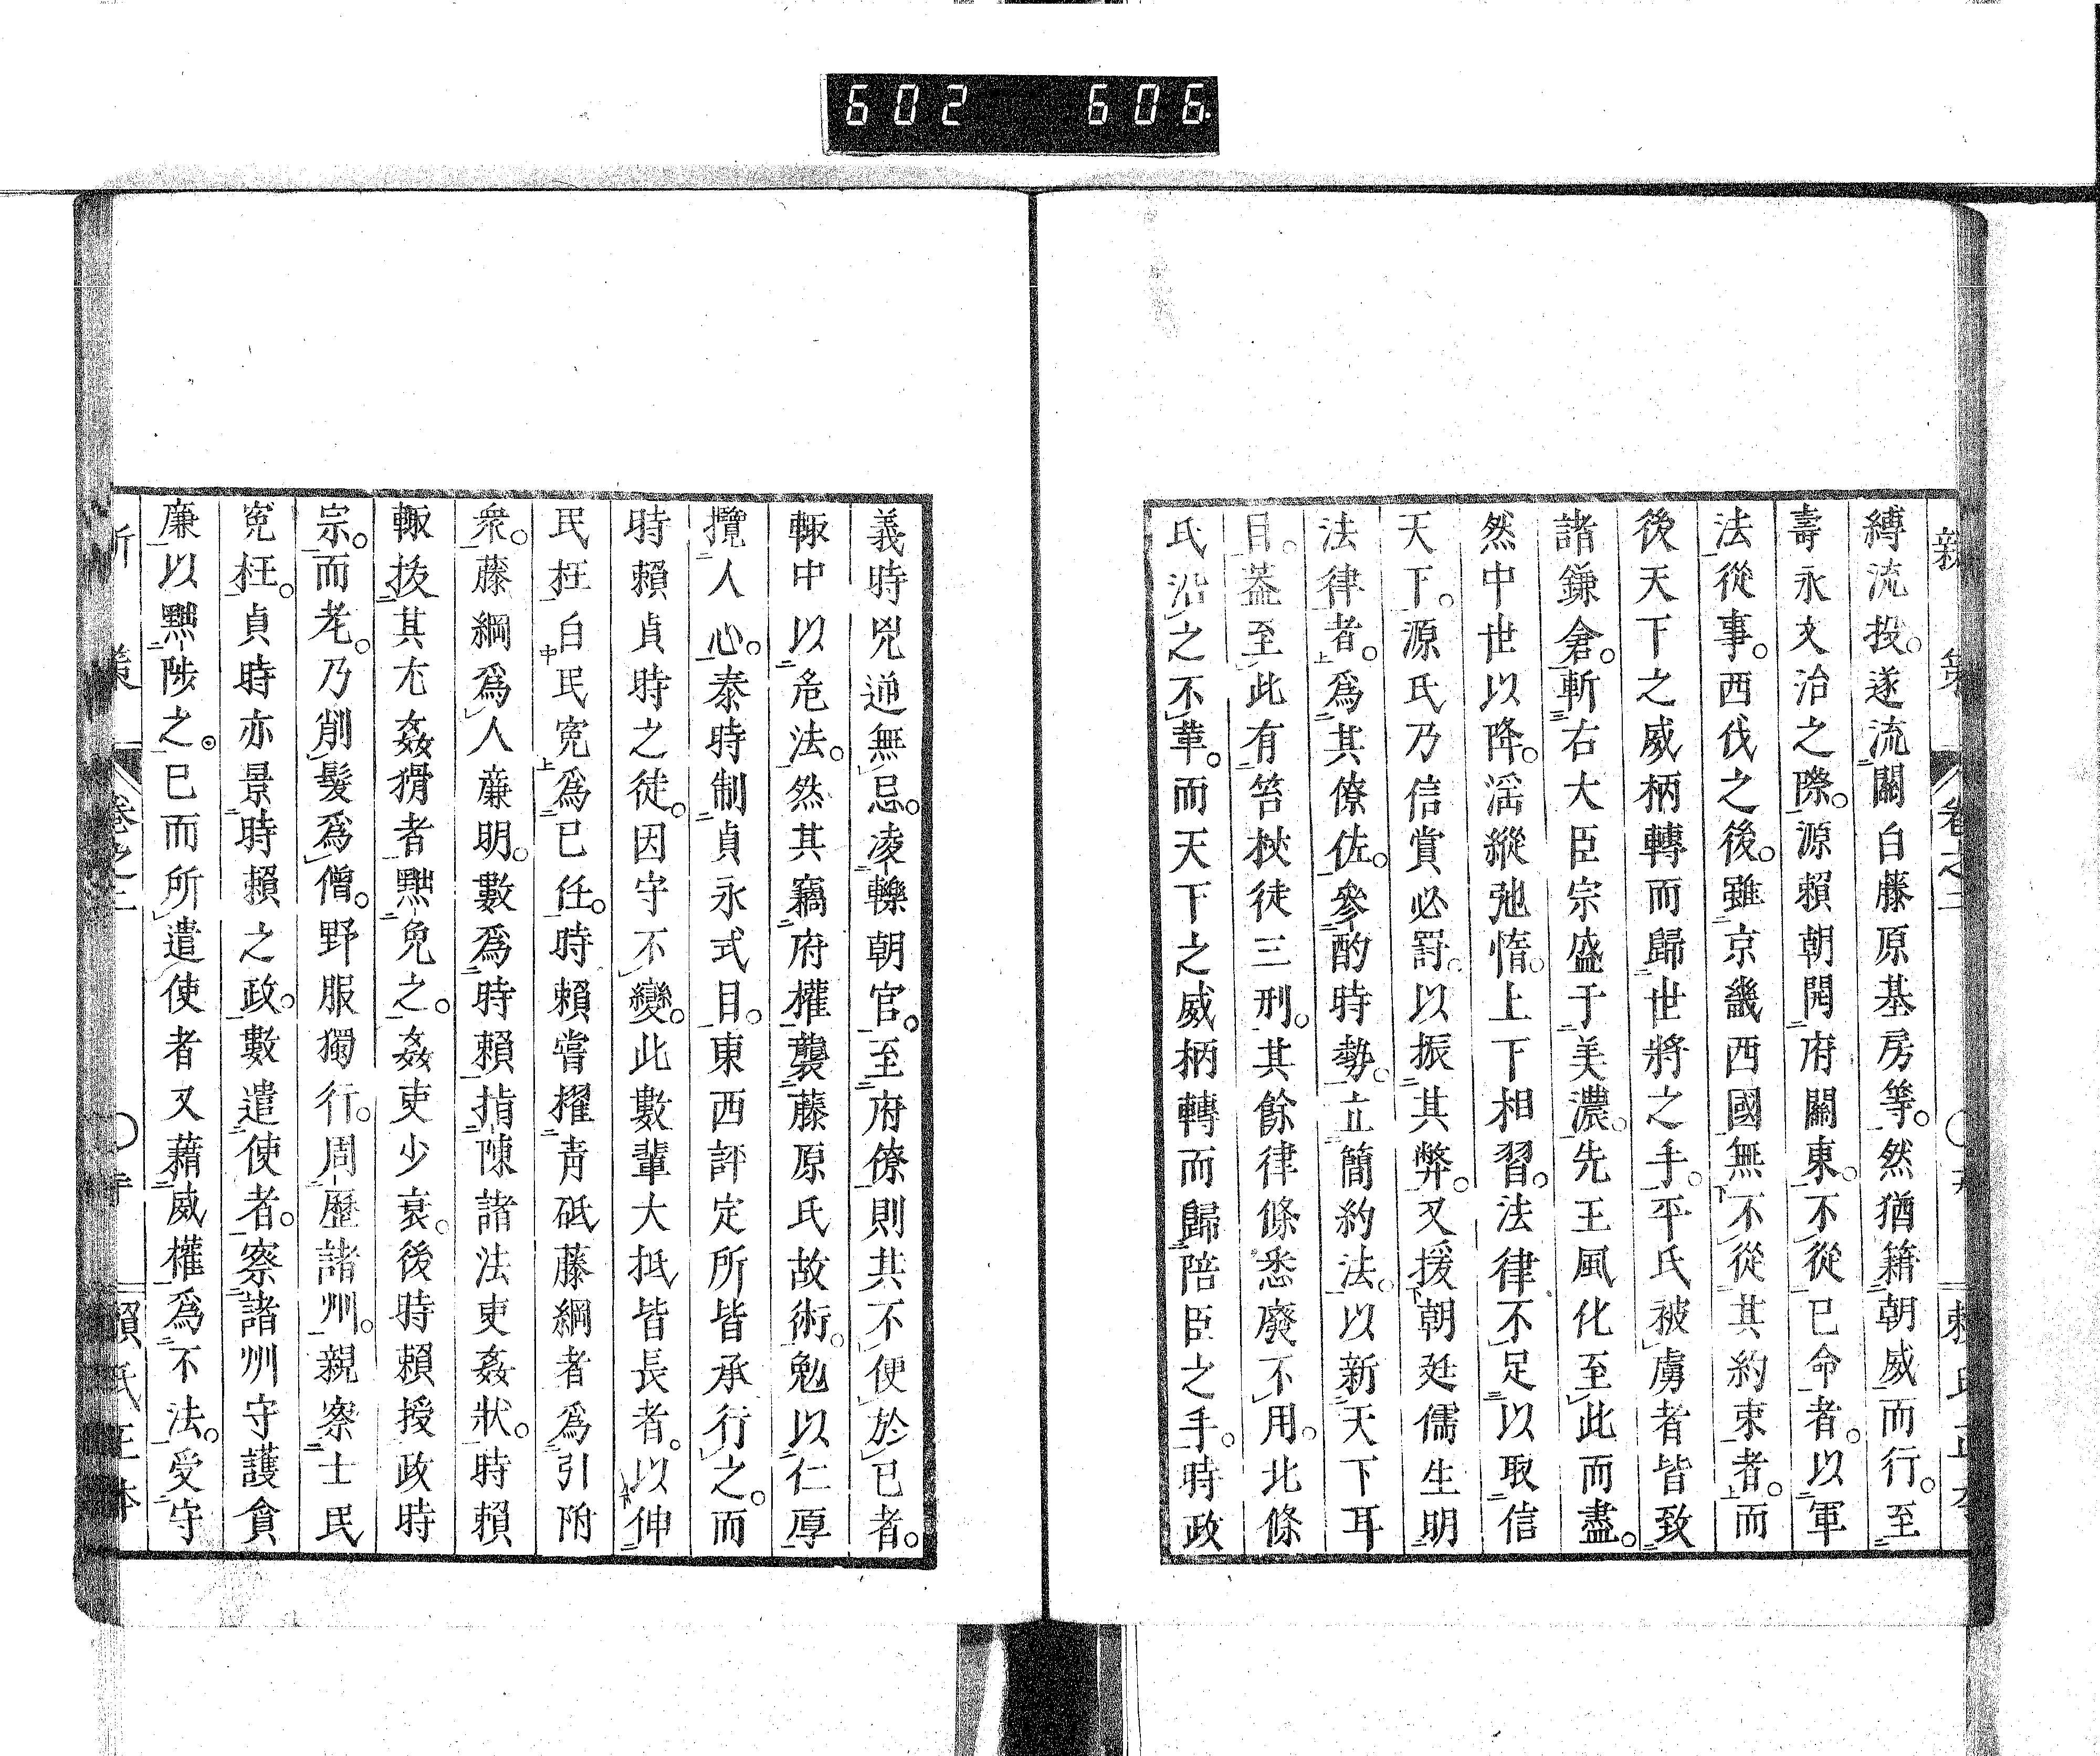 602 606
縛流投。遂流關白藤原基房等。然猶籍朝威而行。至
壽永文治之際。源賴朝開府關東。不從已命者。以軍
法從事。西伐之後。雖京畿西國無不從其約束者。而
後天下之威柄轉而歸世將之手。平氏被虜者皆致
諸鎌倉。斬右大臣宗盛于美濃。先王風化至此而盡。
然中世以降。滛縱弛惰。上下相習。法律不足以取信
天下。源氏乃信賞必罰。以振其弊。又援朝廷儒生明
法律者。爲其僚佐。參酌時勢。立簡約法。以新天下耳
目。葢至此有笞杖徒三刑。其餘律條悉廢不用。北條
氏沿之不革。而天下之威柄轉而歸陪臣之手。時政
義時兇逆無忌。凌轢朝官。至府僚則共不便於已者。
輙中以危法。然其竊府權襲藤原氏故術。勉以仁厚
攬人心。泰時制貞永式目。東西評定所皆承行之。而
時賴貞時之徒。因守不變。此數輩大抵皆長者。以伸
民枉白民寃爲已任。時賴嘗擢靑砥藤綱者爲引附
衆。藤綱爲人廉明。數爲時賴指陳諸法吏姦狀。時賴
輙拔其尤姦猾者黜免之。姦吏少衰。後時賴授政時
宗。而老。乃削髮爲僧。野服獨行。周歷諸州。親察士民
寃枉。貞時亦景時賴之政。數遣使者。察諸州守護貪
廉以黜陟之。已而所遣使者又藉威權爲不法。受守
新策 卷之二 賴氏正本